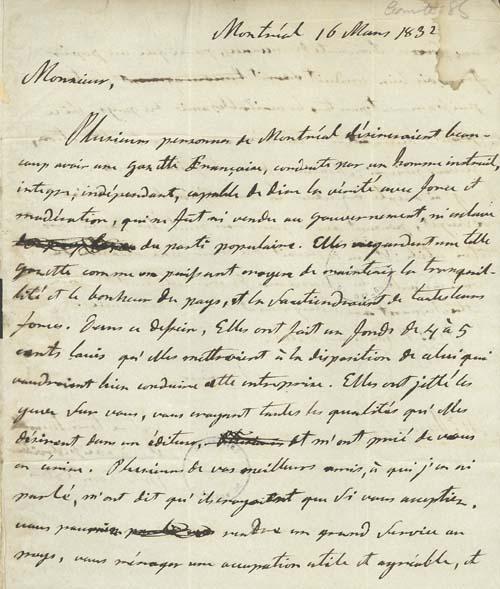 Montréal 16 Mars 1832
Monsieur,
Plusieurs personnes de Montréal désireraient beau-
coup avoir une gazette Française, conduite par un homme instruit,
integre, indépendant, capable de dire la vérité avec force et
modération, qui ne fut ni vendu au gouvernement, ni esclave
du parti populaire. Elles regardent une telle
gazette comme un puissant moyen de maintenir la tranquil-
lité et le bonheur du pays, et la soutiendraient de toutes leurs
forces. Dans ce dessein, Elles ont fait un fonds de 4 à 5
cents louis qu'elles mettroient à la disposition de celui qui
voudroient bien conduire cette entreprise. Elles ont jetté les
yeux sur vous, vous croyant toutes les qualités qu'elles
désirent dans un éditeur, et m'ont prié de vous
en écrire. Plusieurs de vos meilleurs amis, à qui j'en ai
parlé, m'ont dit qu'ils croyoient que si vous acceptiez,
vous rendre un grand service au
pays, vous ménager une occupation utile et agréable, et